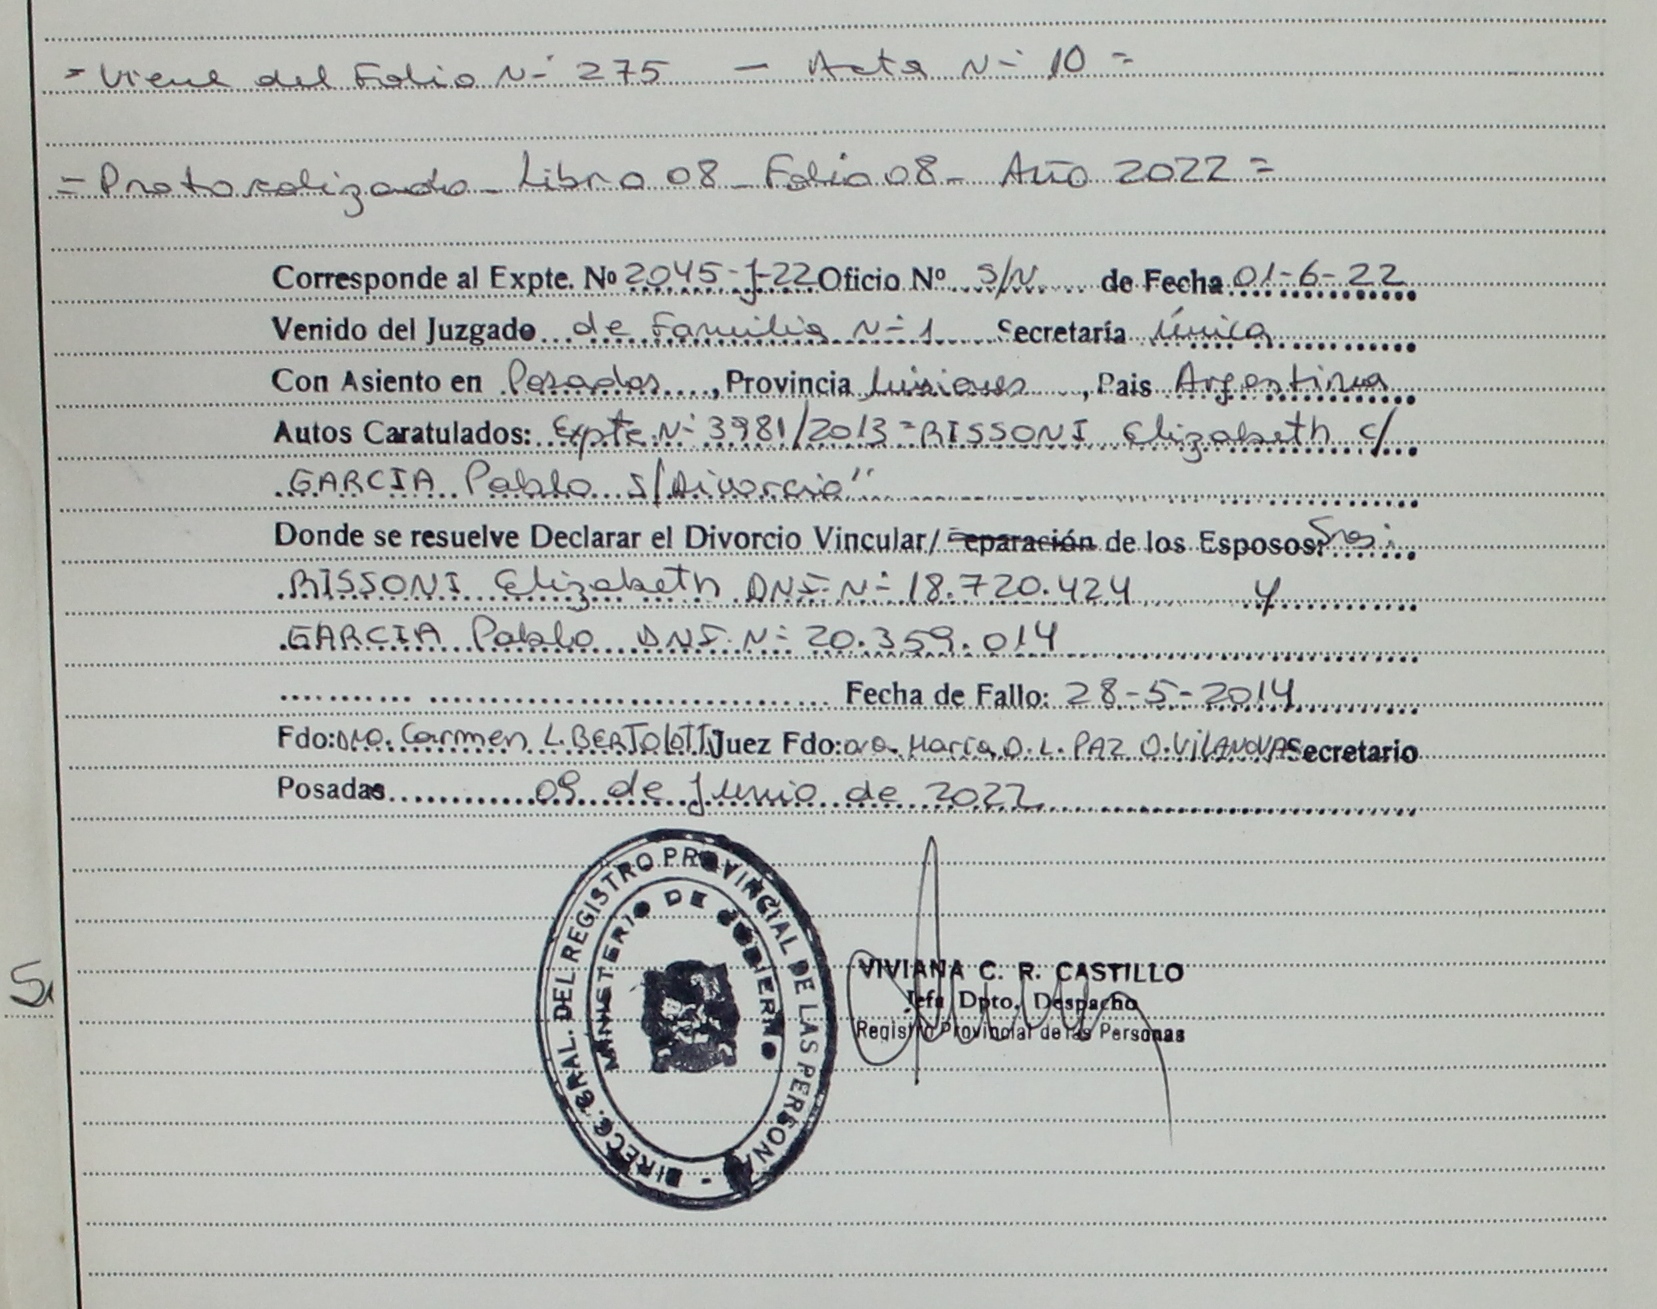 = Viene del Folio N-° 275 — Acta N-° 10 =
= Protocolizado - Libro 08 - Folio 08 - Año 2022 =
Corresponde al Expte. Nº 2045-J-22 Oficio Nº S/N de Fecha 01-6-22
Venido del Juzgado de Familia N-° 1 Secretaría Única
Con Asiento en Posadas, Provincia Misiones, Pais Argentina
Autos Caratulados: Expte N-° 3981/2013 "RISSONI Elizabeth c/
GARCIA Pablo s/Divorcio"
Donde se resuelve Declarar el Divorcio Vincular/ Separación de los Esposos: Sres:
RISSONI Elizabeth DNI-N-° 18.720.424 y
GARCIA Pablo DNI. N-° 20.359.014
Fecha de Fallo: 28-5-2014
Fdo: Dra. Carmen L. BERTOLOTTI Juez Fdo: Dra. María D. L. PAZ O. VILANOVA Secretario
Posadas 09 de Junio de 2022
DIRECC. GRAL. DEL REGISTRO PROVINCIAL DE LAS PERSONAS -
MINISTERIO DE GOBIERNO
VIVIANA C. R. CASTILLO
Jefa Dpto. Despacho
Registro Provincial de las Personas